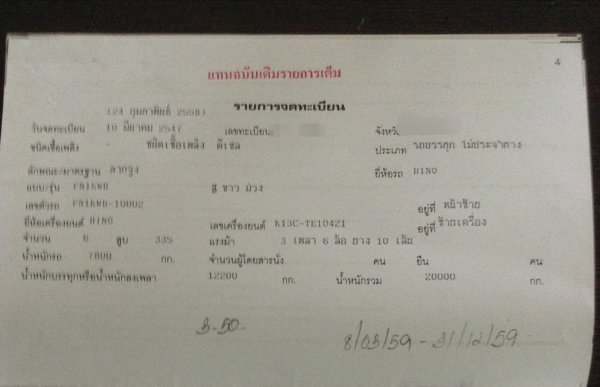 4
แทนฉบับเดิมรายการเต็ม
(24 กุมภาพันธ์ 2558) รายการจดทะเบียน
วันจดทะเบียน 10 มีนาคม 2547 เลขทะเบียน จังหวั
ชนิดเชื้อเพลิง ชนิดเชื้อเพลิง ดีเซล ประเภท รถบรรทุก ไม่ประจำทาง
ลักษณะ/มาตรฐาน ลากจูง ยี่ห้อรถ HINO
แบบ/รุ่น FM1KWB สี ขาว ม่วง
เลขตัวรถ FM1KWB-10002 อยู่ที่ หน้าซ้าย
ยี่ห้อเครื่องยนต์ HINO เลขเครื่องยนต์ K13C-TE10421 อยู่ที่ ซ้ายเครื่อง
จำนวน 6 สูบ 335 แรงม้า 3 เพลา 6 ล้อ ยาง 10 เส้น
น้ำหนักรถ 7800 กก. จำนวนผู้โดยสารนั่ง คน ยืน คน
น้ำหนักบรรทุกหรือน้ำหนักลงเพลา 12200 กก. น้ำหนักรวม 20000 กก.
3-50 8/03/59 - 31/12/59